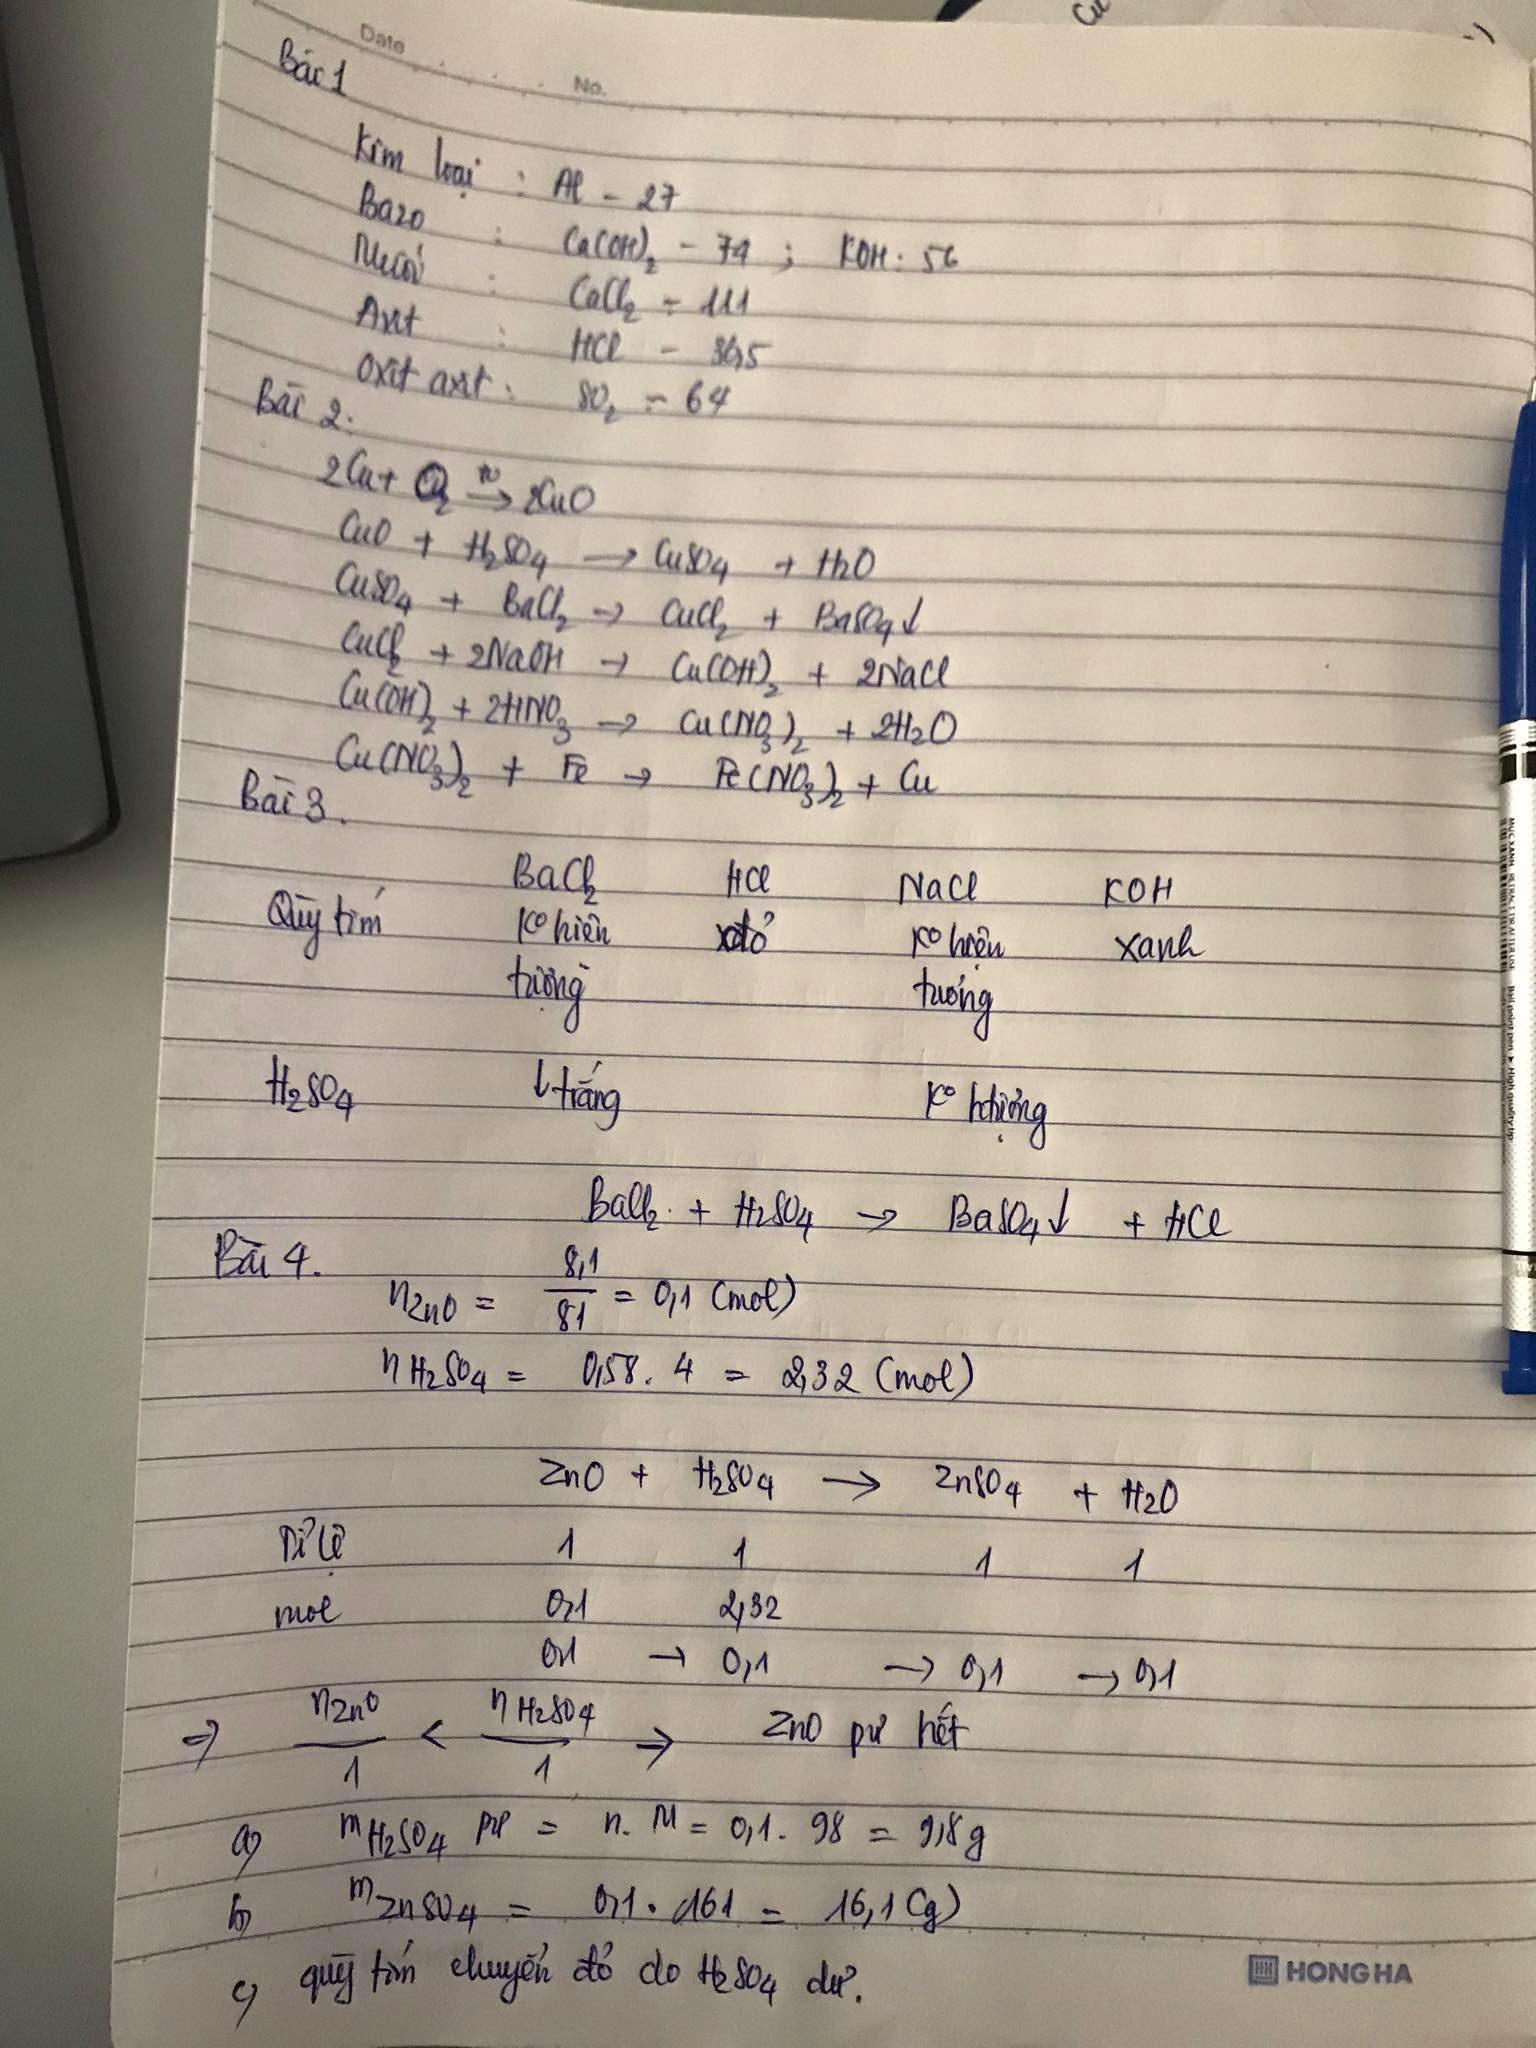 Date
No.
Bài 1
Kim loại : Al - 27
Bazo : Ca(OH)2 - 74 ; KOH : 56
Muối : CaCl2 - 111
Axit : HCl - 36,5
Oxit axit : SO2 - 64
Bài 2:
2Cu + O2 →(t°) 2CuO
CuO + H2SO4 → CuSO4 + H2O
CuSO4 + BaCl2 → CuCl2 + BaSO4↓
CuCl2 + 2NaOH → Cu(OH)2 + 2NaCl
Cu(OH)2 + 2HNO3 → Cu(NO3)2 + 2H2O
Cu(NO3)2 + Fe → Fe(NO3)2 + Cu
Bài 3.
BaCl2 HCl NaCl KOH
Qùy tím K° hiện đỏ K° hiện xanh
tượng tượng
H2SO4 ↓ trắng K° htượng
BaCl2 + H2SO4 → BaSO4↓ + HCl
Bài 4.
nZnO = 8,1/81 = 0,1 (mol)
nH2SO4 = 0,58 . 4 = 2,32 (mol)
ZnO + H2SO4 → ZnSO4 + H2O
Tỉ lệ 1 1 1 1
mol 0,1 2,32
0,1 → 0,1 → 0,1 → 0,1
⇒ nZnO/1 < nH2SO4/1 → ZnO pư hết
a) mH2SO4 pư = n. M = 0,1 . 98 = 9,8g
b) mZnSO4 = 0,1 . 161 = 16,1 (g)
c) quỳ tím chuyển đỏ do H2SO4 dư.
HONG HA